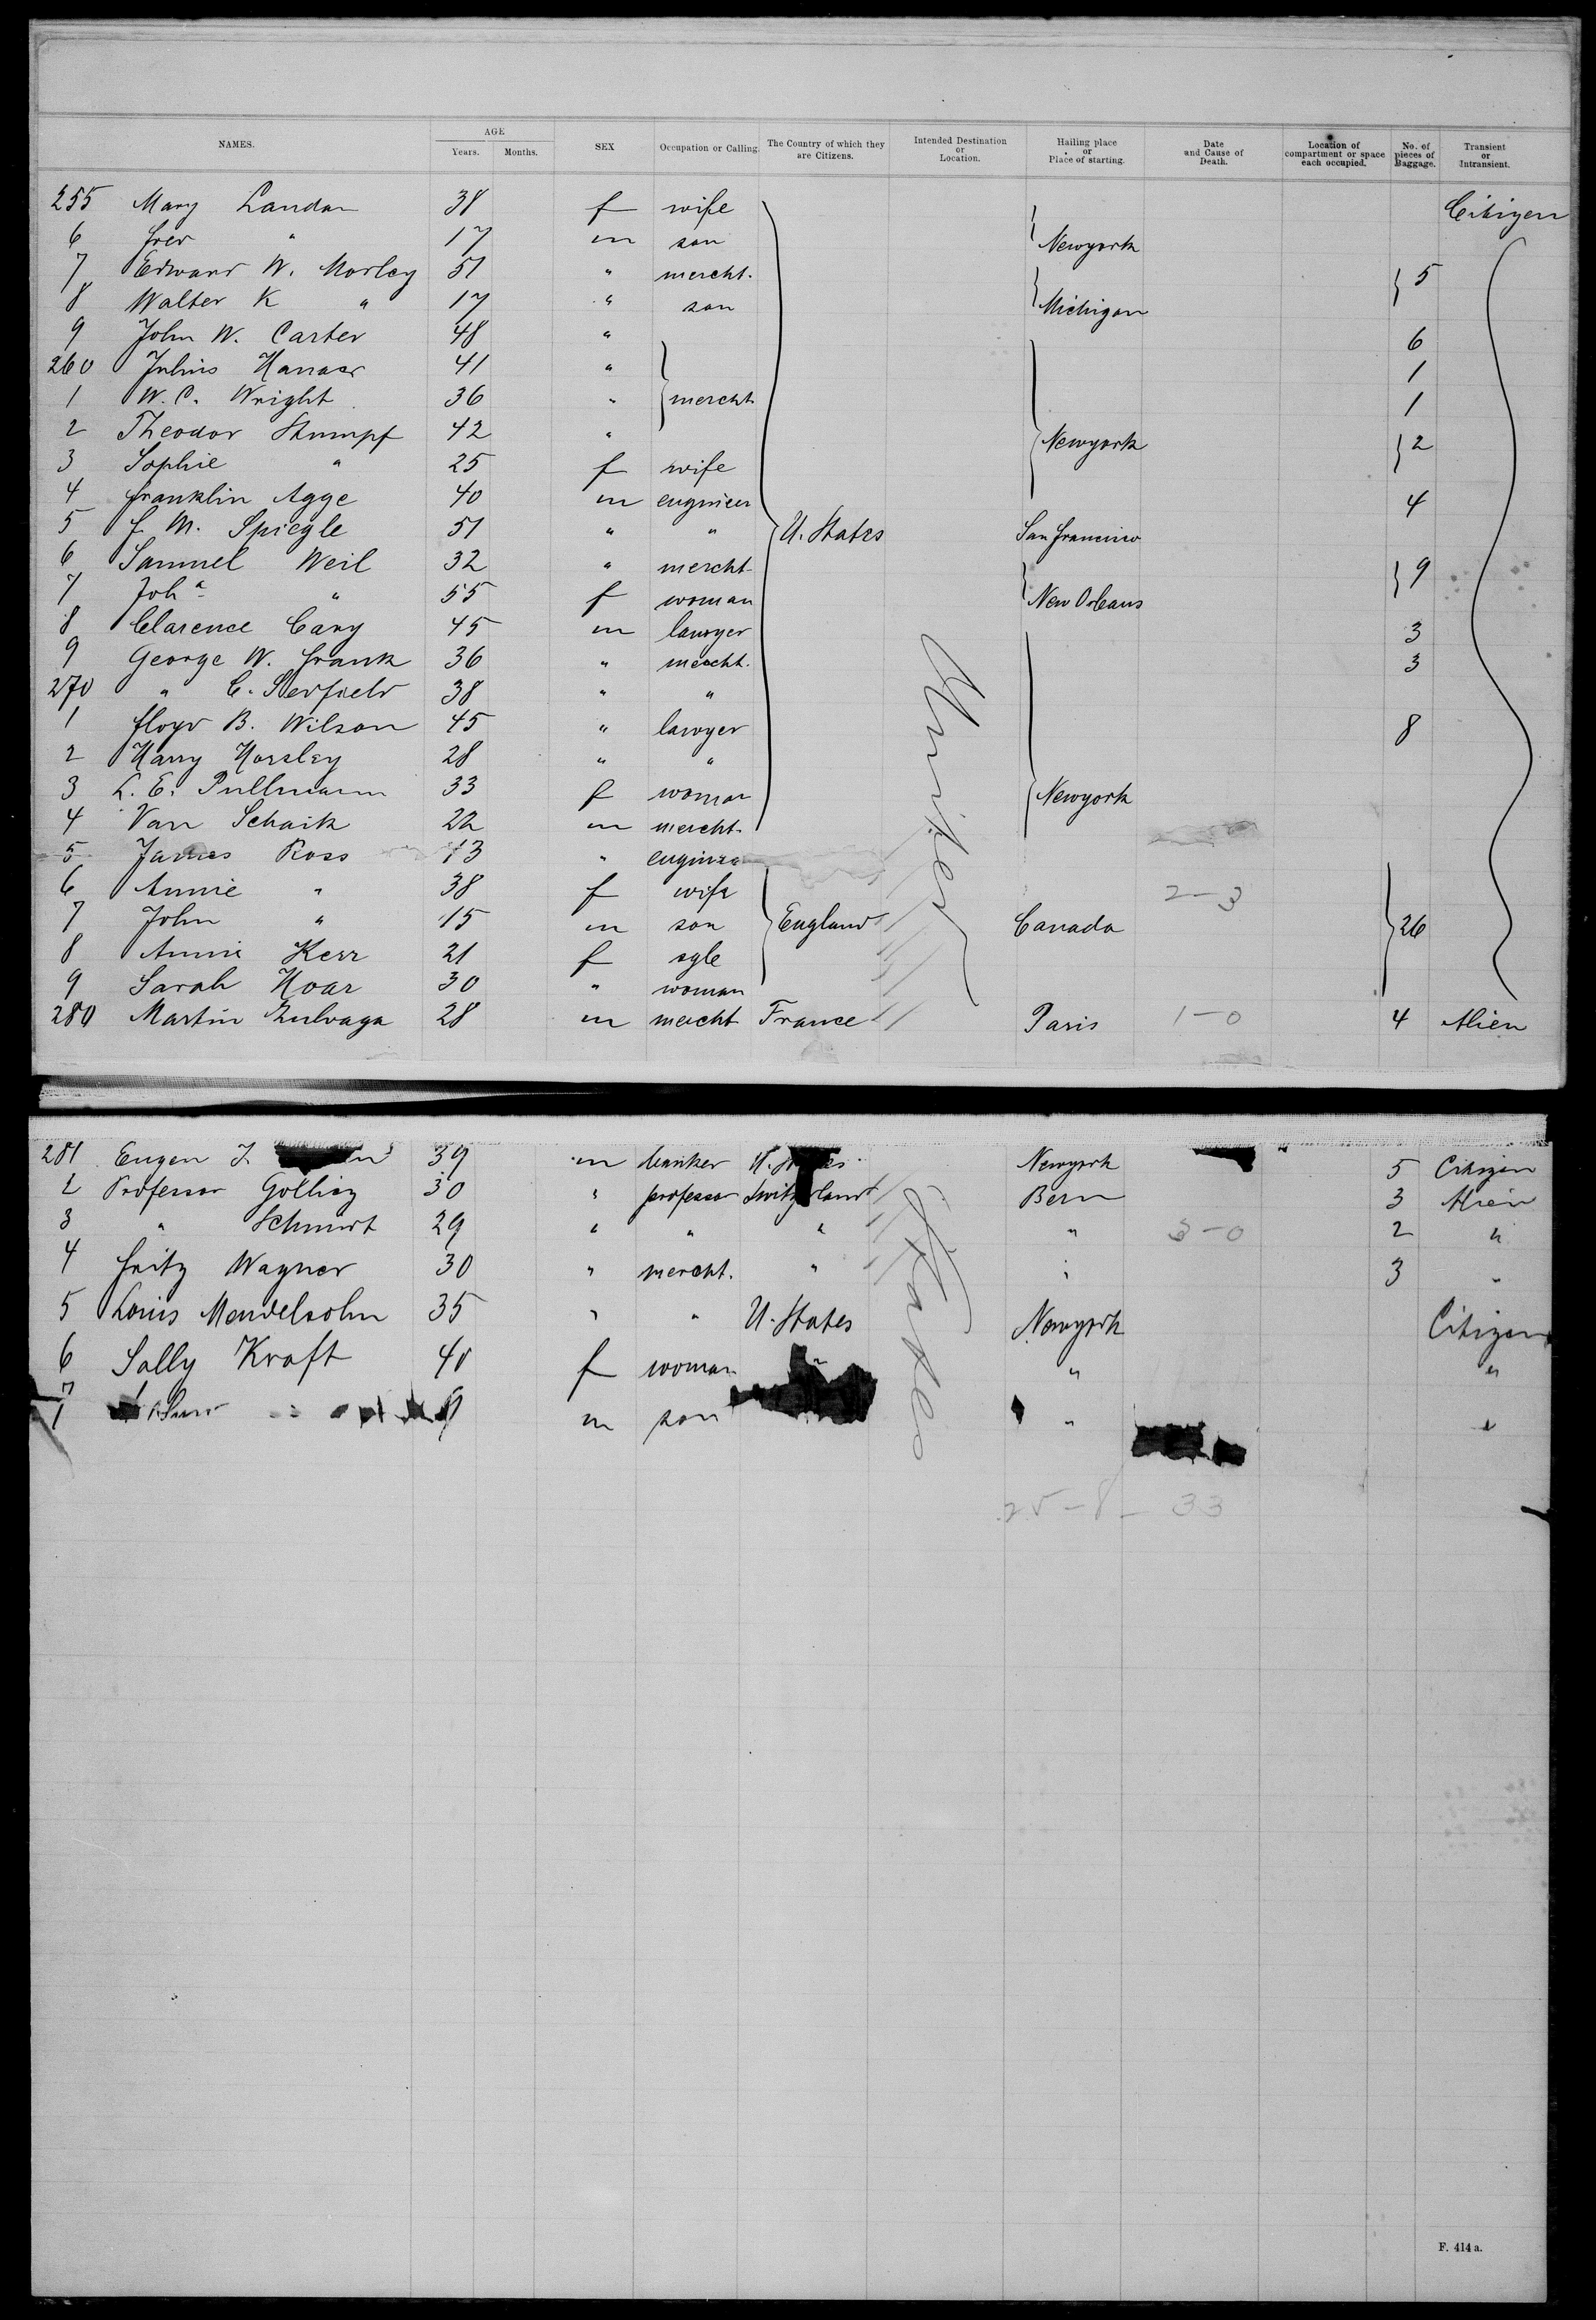 NAMES. AGE Years. Months. SEX Occupation or Calling. The Country of which they are Citizens. Intended Destination or Location. Hailing place or Place of starting. Date and Cause of Death. Location of compartment or space each occupied. No. of pieces of Baggage. Transient or Intransient.
255 Mary Landon 38 f wife Citizen
6 Fred " 17 m son Newyork
7 Edward W. Morley 51 " mercht. 5
8 Walter K " 17 " son Michigan
9 John W. Carter 48 " 6
260 Julius 41 " 1
1 W. C. Wright 36 " mercht 1
2 Theodor Stumpf 42 " Newyork 2
3 Sophie " 25 f wife
4 Franklin Agge 40 m engineer 4
5 F. M. Spiegle 51 " " U. States San Francisco
6 Samuel Weil 32 " mercht 9
7 Joh.a " 55 f woman New Orleans
8 Clarence Cary 45 m lawyer 3
9 George W. Frank 36 " mercht. 3
270 " C. 38 " "
1 Floyd B. Wilson 45 " lawyer 8
2 Harry Horsley 28 " "
3 L. E. Pullmann 33 f woman Newyork
4 Van Schaik 22 m mercht.
5 James Ross 43 "
6 Annie " 38 f wife 2-3
7 John " 15 m son England Canada 26
8 Annie Kerr 21 f sgle
9 Sarah Hoar 30 " woman
280 Martin Zulvaga 28 m mercht France Paris 1-0 4 Alien
United
281 Eugen 39 m banker U. States Newyork 5 Citizen
2 Professor Golliez 30 " professor Switzerland Bern 3 Alien
3 " Schmidt 29 " " " " 3-0 2 "
4 Fritz Wagner 30 " mercht. " " 3 "
5 Louis Mendelsohn 35 " " U. States Newyork Citizen
6 Sally Kraft 40 f woman " " "
7 m son " "
States
25-8-33
F. 414 a.